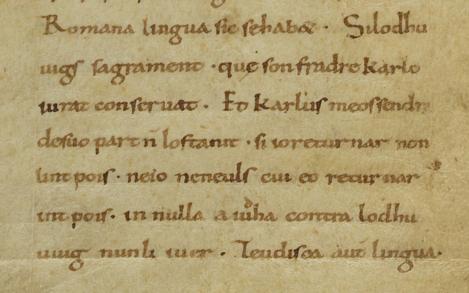 Romana lingua sic se hab&. Silodhu
uigs sagrament. que son fradre karlo
iurat conseruat. Et karlus meossendra
desuo part n̄ lostanit. si ioreturnar non
lint pois. neio neneuls cui eo returnar
int pois. in nulla aiudha contra lodhu
uuig nunli iuer. Teudisca aut̄ lingua.